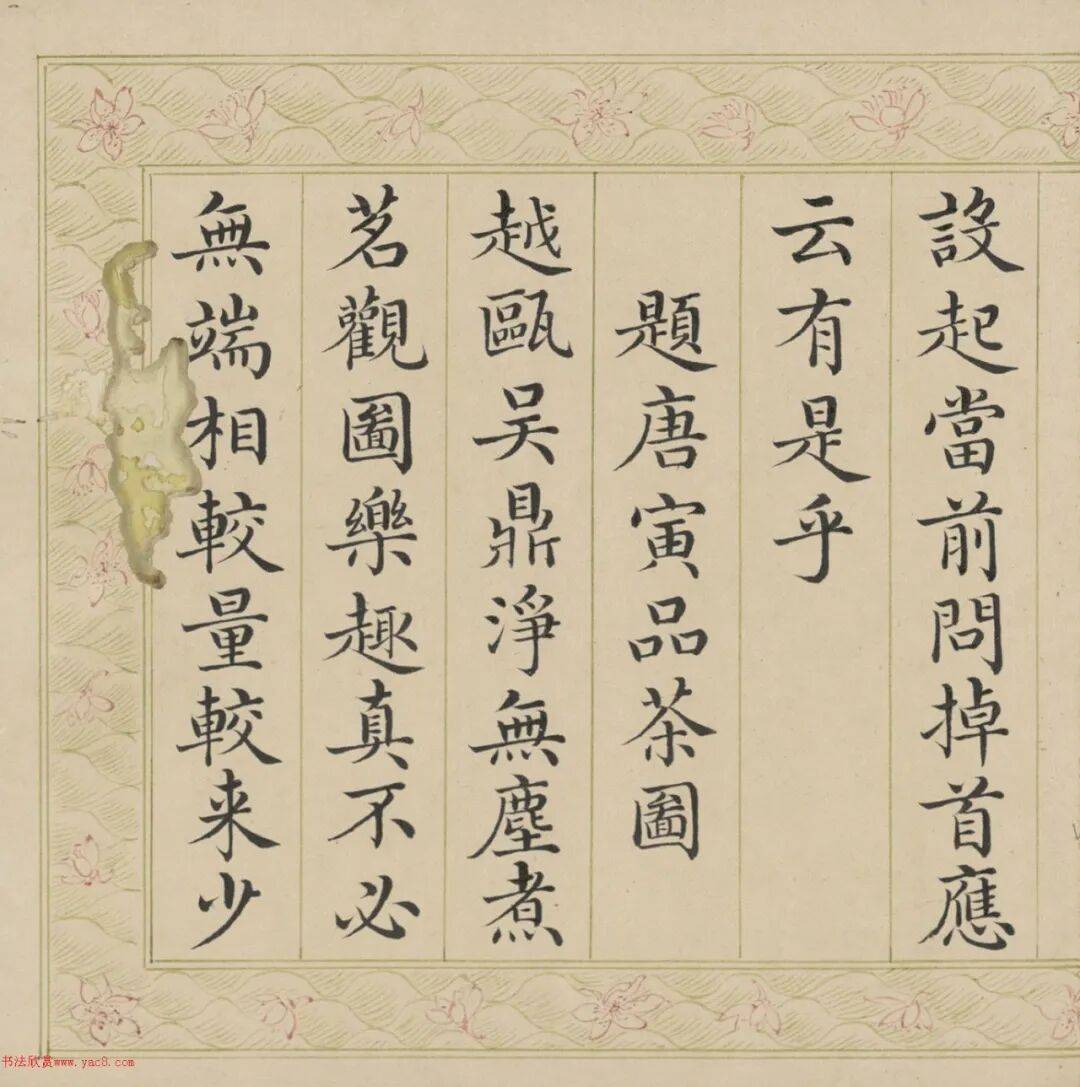 設起當前問掉首應
云有是乎
題唐寅品茶圖
越甌吴鼎淨無塵煮
茗觀圖樂趣真不必
無端相較量較来少
书法欣赏www.yac8.com